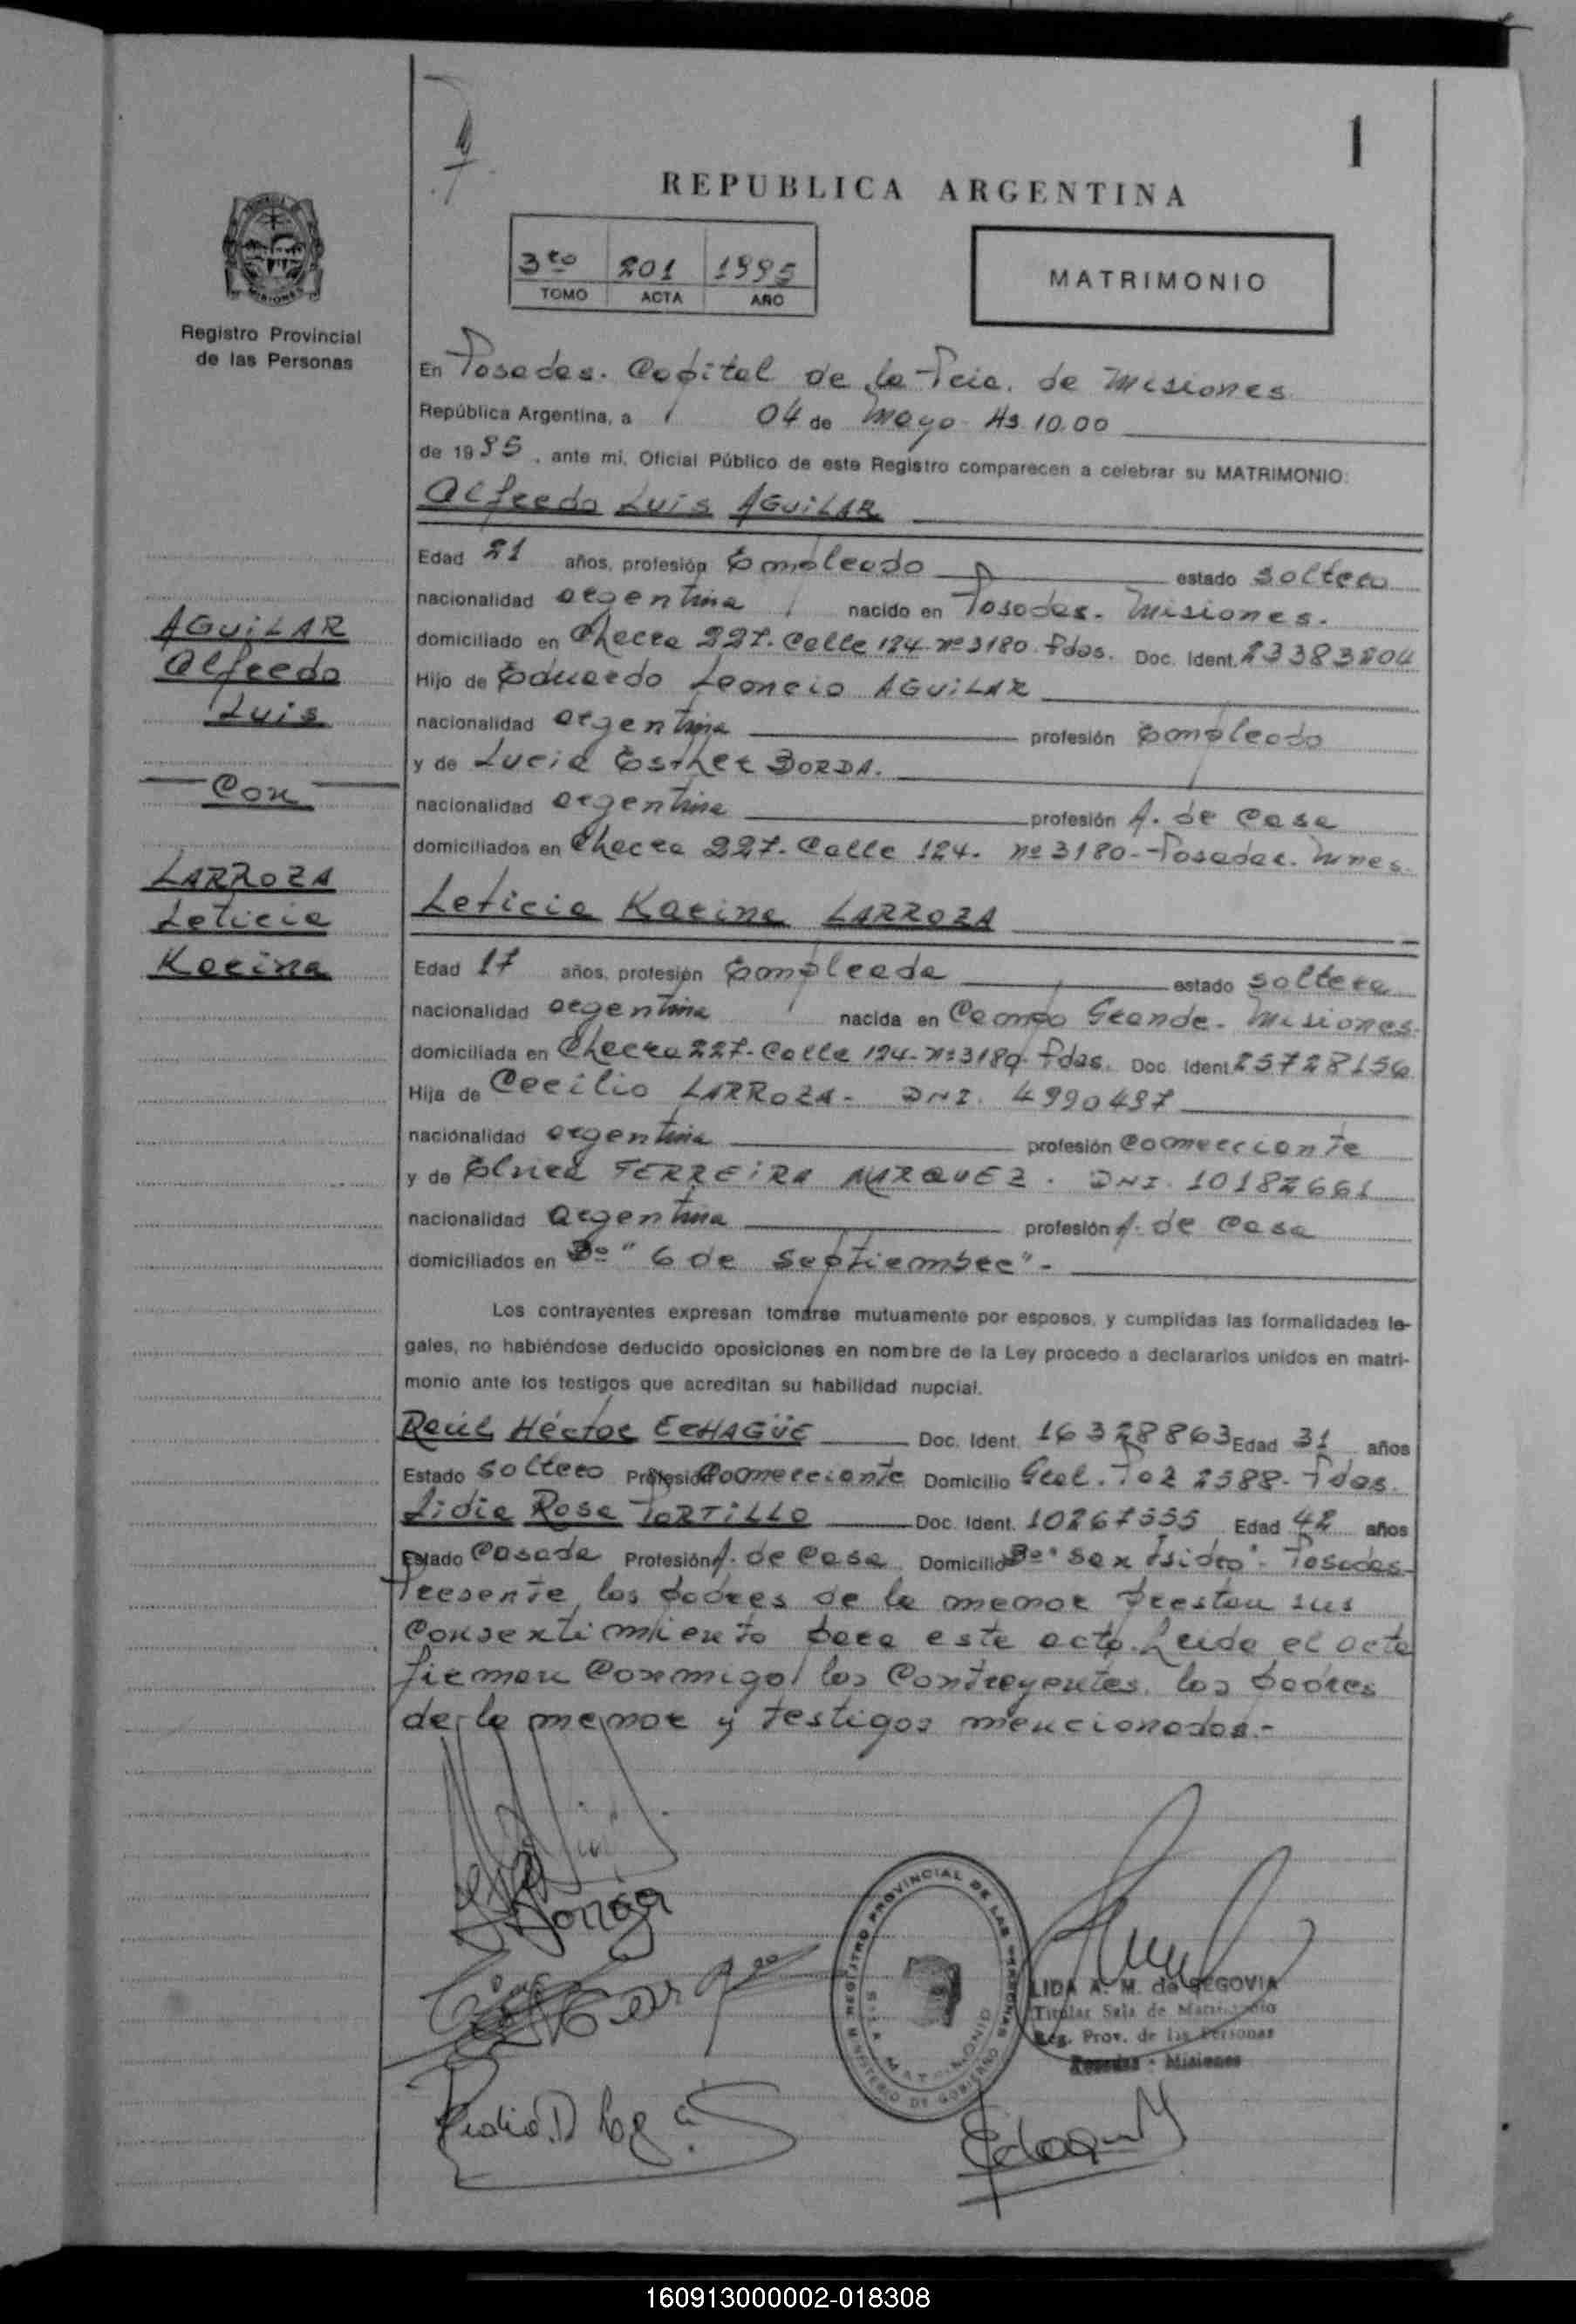 1
REPUBLICA ARGENTINA
3ro 201 1995
TOMO ACTA AÑO
MATRIMONIO
Registro Provincial
de las Personas
En Posadas. Capital de la Pcia. de Misiones
República Argentina, a 04 de Mayo Hs 10.00
de 1995, ante mi, Oficial Público de este Registro comparecen a celebrar su MATRIMONIO:
Alfredo Luis AGUILAR
Edad 21 años, profesión Empleado estado soltero
nacionalidad argentina nacido en Posadas. Misiones.
domiciliado en Chacra 227. Calle 124 nº 3180 Pdas. Doc. Ident. 23383204
Hijo de Eduardo Leoncio AGUILAR
nacionalidad argentina profesión Empleado
y de Lucia Esther BORDA.
nacionalidad argentina profesión A. de Casa
domiciliados en Chacra 227. Calle 124. nº 3180 - Posadas. Mnes.
AGUILAR
Alfredo
Luis
Con
LARROZA
Leticia
Karina
Leticia Karina LARROZA
Edad 17 años, profesión Empleada estado soltera
nacionalidad argentina nacida en Campo Grande. Misiones.
domiciliada en Chacra 227. Calle 124. nº 3180. Pdas. Doc. Ident. 25728156
Hija de Cecilio LARROZA - DNI. 4990497
nacionalidad argentina profesión Comerciante
y de FERREIRA MARQUEZ. DNI. 10182661
nacionalidad argentina profesión A. de Casa
domiciliados en Bº "6 de Septiembre"-
Los contrayentes expresan tomarse mutuamente por esposos, y cumplidas las formalidades le-
gales, no habiéndose deducido oposiciones en nombre de la Ley procedo a declararlos unidos en matri-
monio ante los testigos que acreditan su habilidad nupcial.
Raúl Héctor ECHAGÜE Doc. Ident. 16328863 Edad 31 años
Estado soltero Profesión Comerciante Domicilio Gral. Paz 2588 - Pdas.
Lidia Rosa PORTILLO Doc. Ident. 10267555 Edad 42 años
Estado Casada Profesión A. de Casa Domicilio Bº "San Isidro". Posadas-
Presente los padres de la menor prestan sus
Consentimiento para este acto. Leida el acta
firman Conmigo los Contrayentes, los padres
de la menor y testigos mencionados.-
REGISTRO PROVINCIAL DE LAS PERSONAS
MINISTERIO DE GOBIERNO
SALA MATRIMONIO
LIDA A. M. de SEGOVIA
Titular Sala de Matrimonio
Reg. Prov. de las Personas
Posadas - Misiones
160913000002-018308